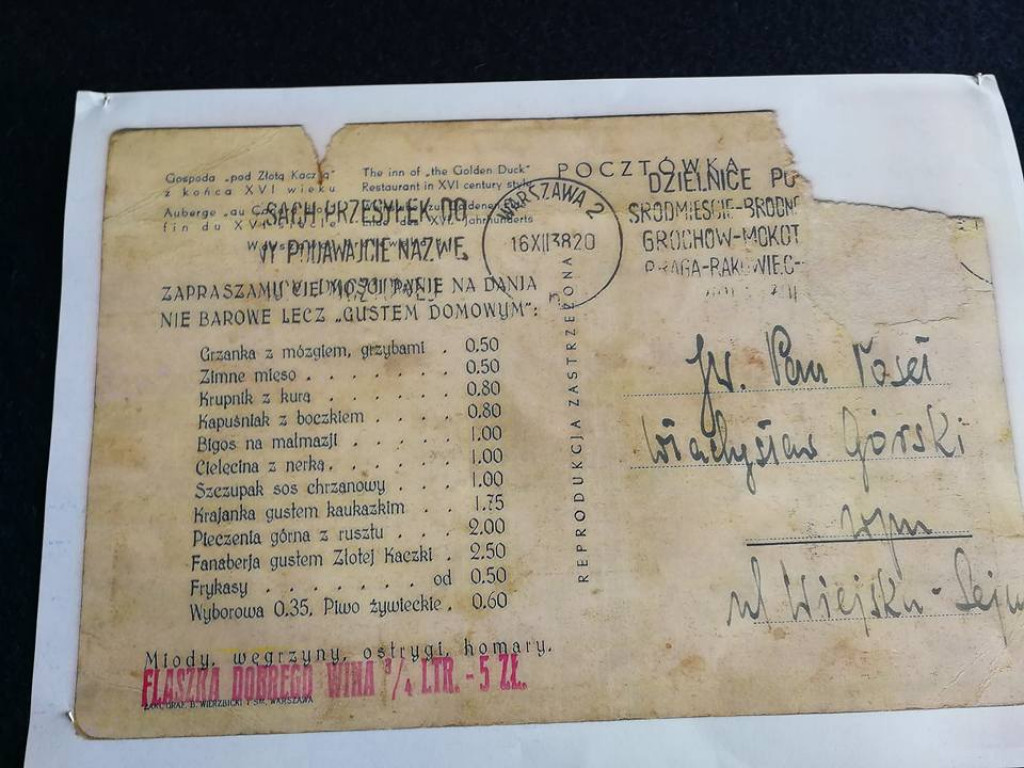 Gospoda „pod Złotą Kaczką"
z końca XVI wieku
The inn of „the Golden Duck"
Restaurant in XVI century style
Auberge „au
fin du XVI siècle
Ende des XVI. Jahrhunderts
SACH PRZESYŁEK DO
PODAWAJCIE NAZWĘ
ZAPRASZAMY NA DANIA
NIE BAROWE LECZ „GUSTEM DOMOWYM":
Grzanka z mózgiem, grzybami . 0.50
Zimne mięso . . . . . . . 0.50
Krupnik z kurą . . . . . . 0.80
Kapuśniak z boczkiem . . . . 0.80
Bigos na malmazji . . . . . 1.00
Cielęcina z nerką. . . . . . 1.00
Szczupak sos chrzanowy . . . 1.00
Krajanka gustem kaukazkim . . 1.75
Pieczenia górna z rusztu . . . 2.00
Fanaberja gustem Złotej Kaczki . 2.50
Frykasy . . . . . . od 0.50
Wyborowa 0.35, Piwo żywieckie . 0.60
Miody, węgrzyny, ostrygi, homary.
FLASZKA DOBREGO WINA ¾ LTR. - 5 ZŁ.
ZAKŁ. GRAF. B. WIERZBICKI I S-KA, WARSZAWA
REPRODUKCJA ZASTRZEŻONA
POCZTÓWKA
WARSZAWA 2
16XII3820
DZIELNICE
ŚRÓDMIEŚCIE-BRÓDN
GROCHÓW-MOKOT
PRAGA-RAKOWIEC-
JW. Pan Poseł
Władysław Górski
wpm
ul Wiejska - Sejm